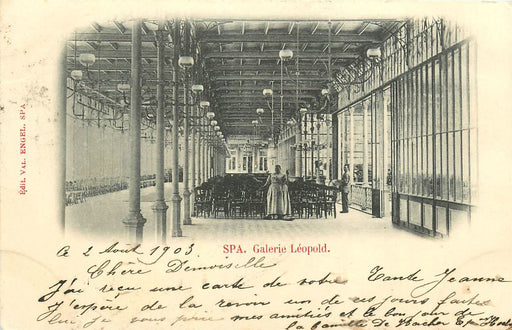 Édit. VAL. ENGEL. SPA.
SPA. Galerie Léopold.
Ce 2 Août 1903
Chère Demoiselle
J'ai reçu une carte de votre Tante Jeanne
J'espère de la revoir un de ces jours faites
lui je vous prie mes amitiés et le bonjour de
la famille De